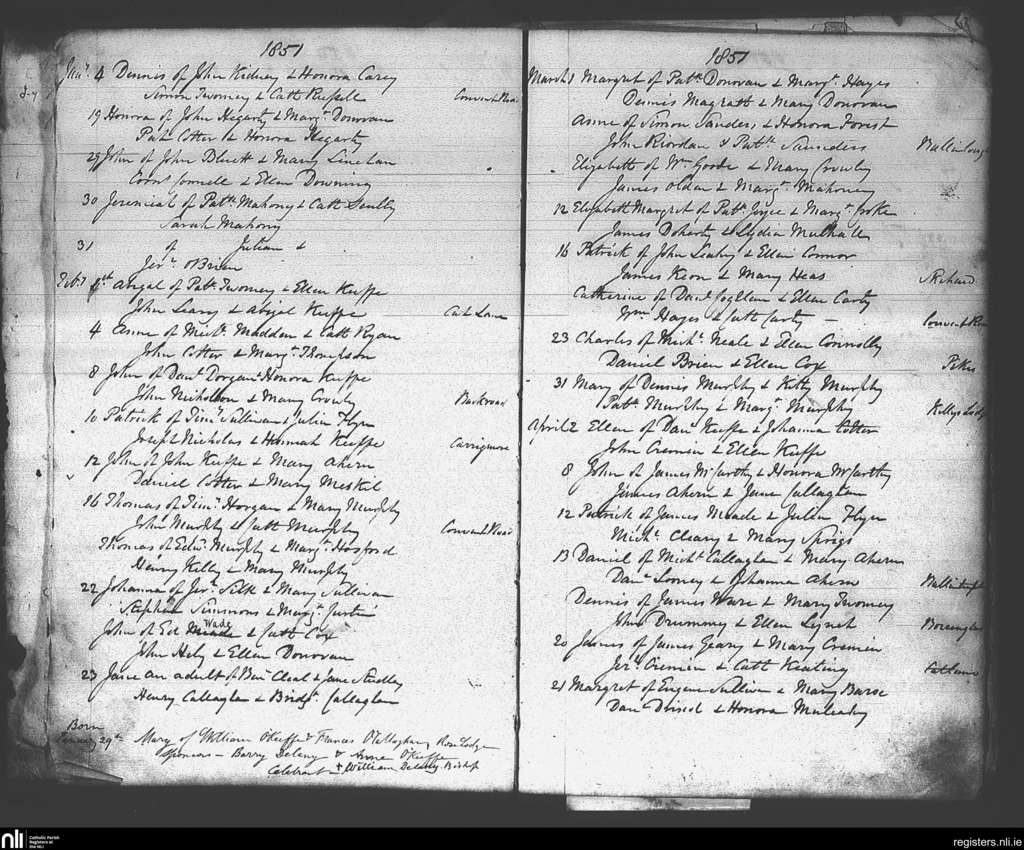 1851
Jany. 4 Dennis of John Kidney & Honora Carey
Simon Twomey & Cath Russell Convent Road
19 Honora of John Hegarty & Margt. Donovan
Pat Cotter & Honora Hegarty
29 John of John Bluett & Mary Linehan
Corns Connell & Ellen Downing
30 Jeremiah of Patk. Mahony & Cath Scully
Sarah Mahony
31 of Julian &
Jerh. OBrien
Feby 1st Abigal of Patk Twomey & Ellen Keeffe
John Leary & Abigal Keeffe Cat Lane
4 Anne of Michl. Madden & Cath Ryan
John Cotter & Margt. Thompson
8 John of Danl Dorgan & Honora Keeffe
John Nicholson & Mary Crowly Backroad
10 Patrick of Timy Sullivan & Julia Flyn
Joseph Nicholas & Hannah Keeffe Carrigmore
12 John of John Keeffe & Mary Ahern
Daniel Cotter & Mary Meskil
16 Thomas of Timy. Horgan & Mary Murphy
John Murphy & Cath Murphy Convent Road
Thomas of Edwd. Murphy & Margt. Hosford
Henry Kelly & Mary Murphy
22 Johanna of Jerh. Silk & Mary Sullivan
Stephen Simmons & Margt.
Wade
John of Ed Meade & Cath Cox
John Hely & Ellen Donovan
23 Jane an adult of Bin Cleal & Jane Studley
Henry Callaghan & Bridgt. Callaghan
Born
January 29th Mary of William O'Keeffe & Frances O'Callaghan, Rose Lodge
Sponsors - Barry Delany & Anne O'Keeffe
Celebrant + William Delany Bishop
1851
March 1 Margret of Patk. Donovan & Margt. Hayes
Dennis Magrath & Mary Donovan
Anne of Simon Sanders & Honora Forest
John Riordan & Patk. Saunders
Elizabeth of Wm Goode & Mary Crowly
James Olden & Margt. Mahoney
12 Elizabeth Margret of Patk Joyce & Margt.
James Doherty & Lydia Mulhall
16 Patrick of John Leahy & Ellen Connor
James Keon & Mary Heas
Catherine of Danl Coghlan & Ellen Carty
Wm Hayes & Cath Carty - Convent Road
23 Charles of Michl. Neale & Ellen Connolly
Daniel Brien & Ellen Cox Pikes
31 Mary of Dennis Murphy & Kitty Murphy
Patk. Murphy & Margt. Murphy Kellys Lodge
April 2 Ellen of Danl Keeffe & Johanna Cotter
John Cremin & Ellen Keeffe
8 John of James McCarthy & Honora McCarthy
James Ahern & Jane Callaghan
12 Patrick of James Meade & Julia Flyn
Michl. Cleary & Mary Sprigs
13 Daniel of Michl Callaghan & Mary Ahern
Danl Looney & Johanna Ahern
Dennis of James Ware & Mary Twomey
John Drummy & Ellen Lynch
20 James of James Geary & Mary Cremin
Jerh. Cremin & Cath Keating Catlane
21 Margret of Eugene Sullivan & Mary Baroe
Danl Driscol & Honora Mulcahy
nli
Catholic Parish
Registers at
the NLI
registers.nli.ie